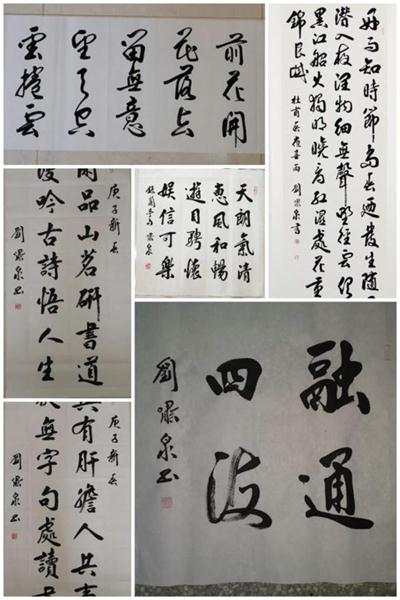 前花開
花落去
留無意
望天空
雲捲雲
好雨知時節當春迺發生隨
潛入夜潤物細無聲野徑雲俱
黑江船火獨明曉看紅濕處花重
錦官城
杜甫春夜喜雨 劉嘯泉書
庚子新春
品山茗研書道
吟古詩悟人生
劉嘯泉書
天朗氣清
惠風和暢
遊目騁懷
娛信可樂
錄蘭亭句 嘯泉
庚子新春
有肝膽人共事
無字句處讀
劉嘯泉書
融通
四海
劉嘯泉書